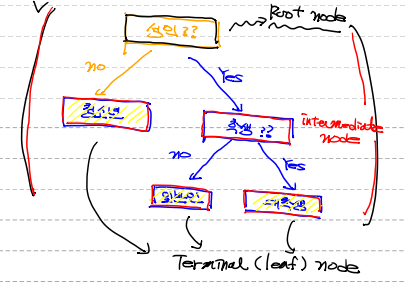 성인??
Root node
no
Yes
청소년
학생??
intermediate
node
no
Yes
일반인
대학생
Terminal (leaf) node